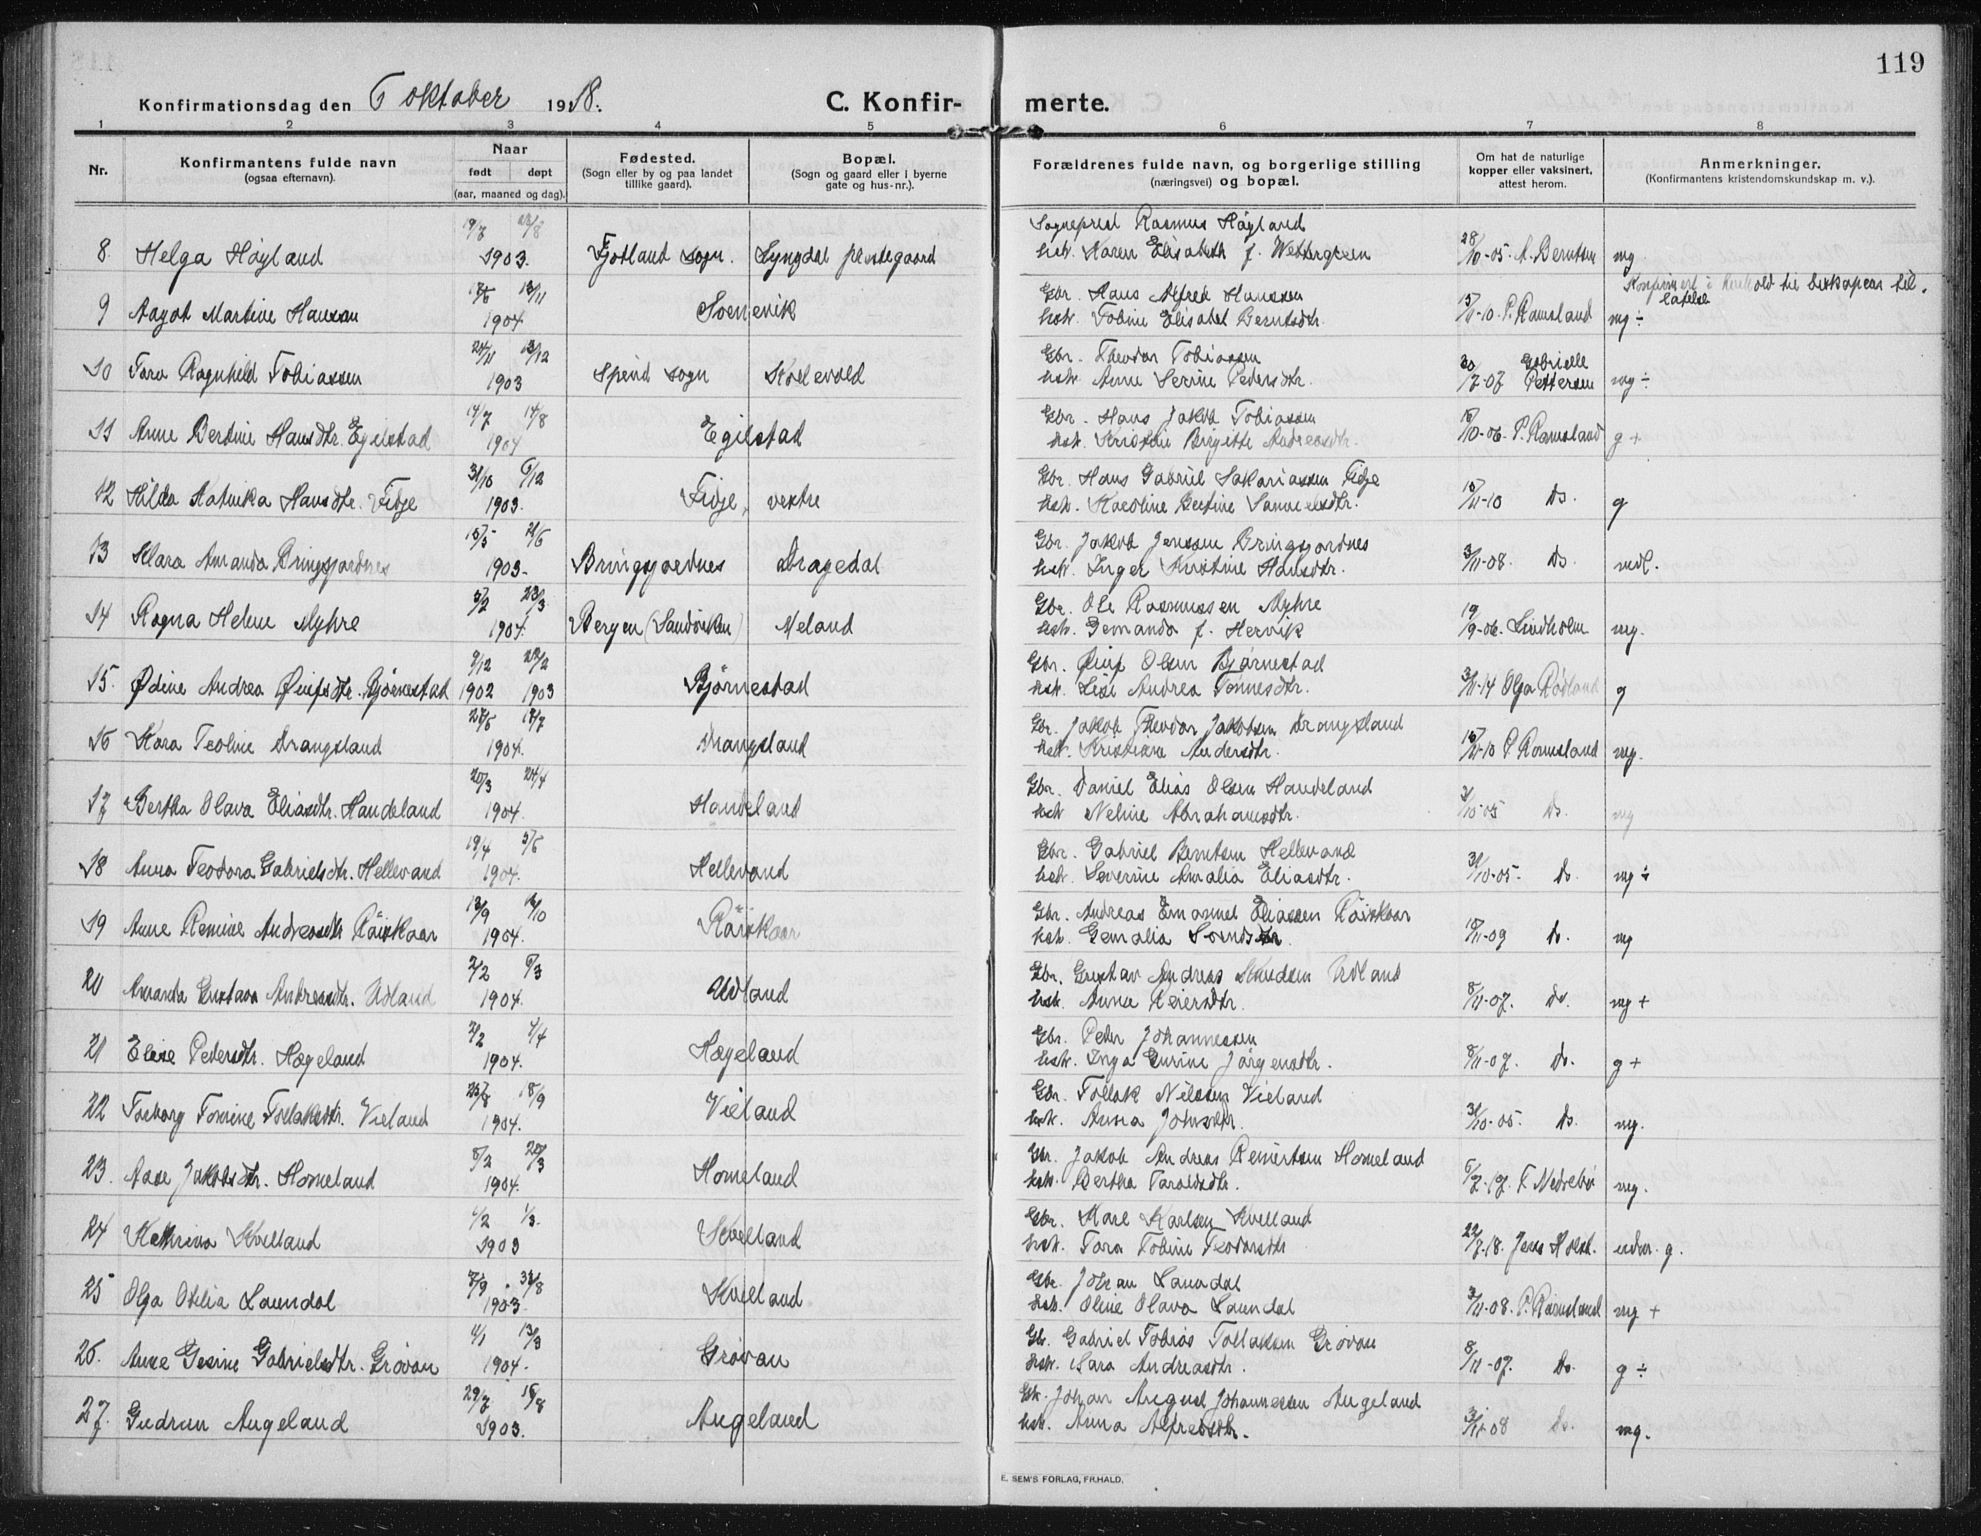 119
Konfirmationsdag den 6 oktober 1918.
C. Konfir- merte.
1 2 3 4 5 6 7 8
Nr.
Konfirmantens fulde navn
(ogsaa efternavn).
Naar
født døpt
(aar, maaned og dag).
Fødested.
(Sogn eller by og paa landet
tillike gaard).
Bopæl.
(Sogn og gaard eller i byerne
gate og hus-nr.).
Forældrenes fulde navn, og borgerlige stilling
(næringsvei) og bopæl.
Om hat de naturlige
kopper eller vaksinert,
attest herom.
Anmerkninger.
(Konfirmantens kristendomskundskap m. v.).
Sogneprest Rasmus Høyland
8 Helga Høyland 1903. Fjotland sogn. Lyngdal prestegaard hst. Karen Elisabeth f. Wettergreen 28/10-05 A. Berntsen mg
Konfirmert i henhold til biskopens til-
latelse
Gbr. Hans Alfred Hanssen
9 Aagot Martine Hansen 1904 hst. Tobine Elisabet Berntsdtr. 15/11-10 P. Ramsland mg ÷
24/11 13/12 Gbr. Theodor Tobiassen Gabrielle
10 Tora Ragnhild Tobiassen 1903 Spind sogn hst. Anne Serine Pedersdtr. 30/7-07 Pettersen mg ÷
14/7 14/8 Gbr. Hans Jakob Tobiassen
11 Anne Bertine Hansdtr. Egilstad 1904 Egilstad hst. Kristine Birgitte Andreasdtr. P. Ramsland g +
31/10 6/12 Gbr. Hans Gabriel Sakariassen Fidje
12 Hilda Hansdtr. Fidje 1903. Fidje, vestre hst. Karoline Bertine Samuelsdtr. 15/11-10 Do. g
Gbr. Jakob Jensen Bringsjordnes
13 Klara Amanda Bringsjordnes 1903- Bringsjordnes Dragedal hst. Inger Kristine Hansdtr. 3/11-08. Do. vedl.
5/2 23/3 Gbr. Ole Rasmussen Myhre
14 Ragna Helene Myhre 1904. Bergen (Sandviken) Meland hst. f. Hervik 19/9-06. Lindholm mg.
9/12 22/2 Gbr. Olsen Bjørnestad
15. Ødine Andrea Bjørnestad 1902 1903 Bjørnestad hst. Lise Andrea Tønnesdtr. 3/11-14 Olga Rødland g
Gbr. Jakob Theodor Jakobsen Drangsland
16 Kara Teoline Drangsland 1904. Drangsland hst. Kristiane Andersdtr. 15/11-10 P. Ramsland mg.
20/3 24/4 Gbr. Daniel Elias Olsen Handeland
17 Bertha Olava Eliasdtr. Handeland 1904. Handeland hst. Neline Abrahamsdtr. 31/10-05 Do. mg
19/4 5/6 Gbr. Gabriel Berntsen Hellevand
18 Anna Teodora Gabrielsdtr. Hellevand 1904. Hellevand hst. Severine Amalia Eliasdtr. 31/10-05. Do. mg ÷
Gbr. Andreas Emanuel Eliassen Röiskaar
19 Anne Remine Andreasdtr Röiskaar 1904. Röiskaar hst. Do. mg
2/2 6/3 Gbr. Gustav Andreas Knudsen Udland
20 Amanda Gustava Andreasdtr. Udland 1904. Udland hst. Anne Reiersdtr. 8/11-07. Do. mg +
2/2 4/4 Gbr. Peder Johannessen
21 Elise Pedersdtr. Hægeland 1904. Hægeland hst. Inga Gurine Jørgensdtr. 8/11-07. Do. g +
18/9 Gbr. Tollak Nilssen Vieland
22 Torborg Tomine Tollaksdtr. Vieland 1904. Vieland hst. Anna Johnsdtr. 31/10-05. Do. mg.
8/2 20/3 Gbr. Jakob Andreas Reinertsen Homeland
23. Aase Jakobsdtr. Homeland 1904. Homeland hst. Bertha Taraldsdtr. Nedrebø mg.
4/2 1/3. Gbr. Karl Karlsen Kvelland
24 Kathrina Kvelland 1903 Kvelland hst. Tora Tobine Teodorsdtr 22/7-18. Jens Holst. udm. g.
Gbr. Johan Laundal
25 Olga Otilia Laundal 1903. Kvelland hst. Oline Olava Laundal 3/11-08. P. Ramsland mg +
4/1 13/3 Gbr. Gabriel Tobias Tollaksen Grövan
26. Anne Gesine Gabrielsdtr. Grövan 1904. Grövan hst. Sara Andreasdtr. 8/11-07. Do. g ÷
29/7 16/8 Gbr. Johan August Johannessen Augeland
27. Gudrun Augeland 1903. Augeland hst. Anna Alfredsdtr. 3/11-08 Do. mg.
E. SEM'S FORLAG, FR.HALD.